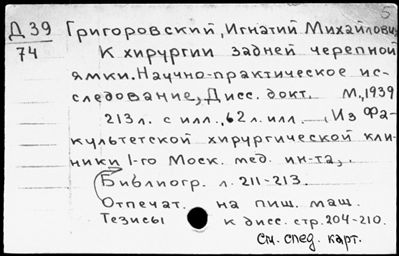 5
Д 39 Григоровский, Игнатий Михайлович
74 К хирургии задней черепной
ямки. Научно-практическое ис-
следование, Дисс. докт. М., 1939
213 л. с илл., 62 л. илл. (Из Фа-
культетской хирургической кли-
ники 1-го Моск. мед. ин-та).
Библиогр. л. 211-213.
Отпечат. на пиш. маш.
Тезисы к дисс. стр. 204-210.
См. спец. карт.